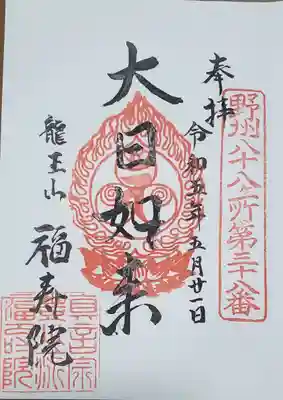 野州八十八ヶ所第三十八番
奉拝
令和五年五月廿一日
大日如来
龍王山
福寿院
真言宗